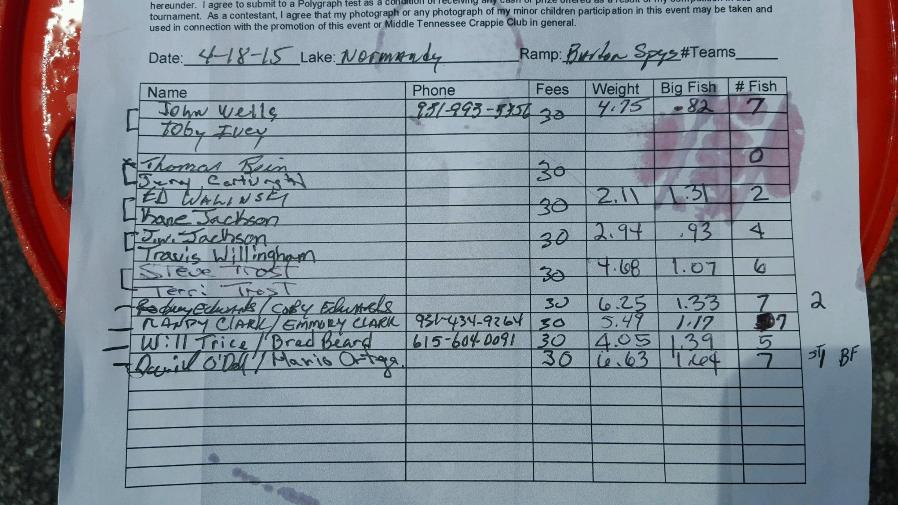 hereunder. I agree to submit to a Polygraph test as a condition of receiving any cash or prize offered as a result of my
tournament. As a contestant, I agree that my photograph or any photograph of my minor children participation in this event may be taken and
used in connection with the promotion of this event or Middle Tennessee Crappie Club in general.
Date: 4-18-15 Lake: Normandy Ramp: Barton Spgs #Teams
Name Phone Fees Weight Big Fish # Fish
John Wells 931-993-5356 30 4.75 .82 7
Toby Ivey
0
Thomas 30
Jerry
ED WALINSKY 30 2.11 1.31 2
Kane Jackson
J.W. Jackson 30 2.94 .93 4
Travis Willingham
Steve Trost 30 4.68 1.07 6
Terri Trost
Rodney Edwards / Coby Edwards 30 6.25 1.33 7 2
RANDY CLARK / EMMORY CLARK 931-434-9264 30 5.49 1.17 7
Will Trice / Brad Beard 615-604-0091 30 4.05 1.39 5
O'Dell / Mario Ortega 30 6.63 1.64 7 BF